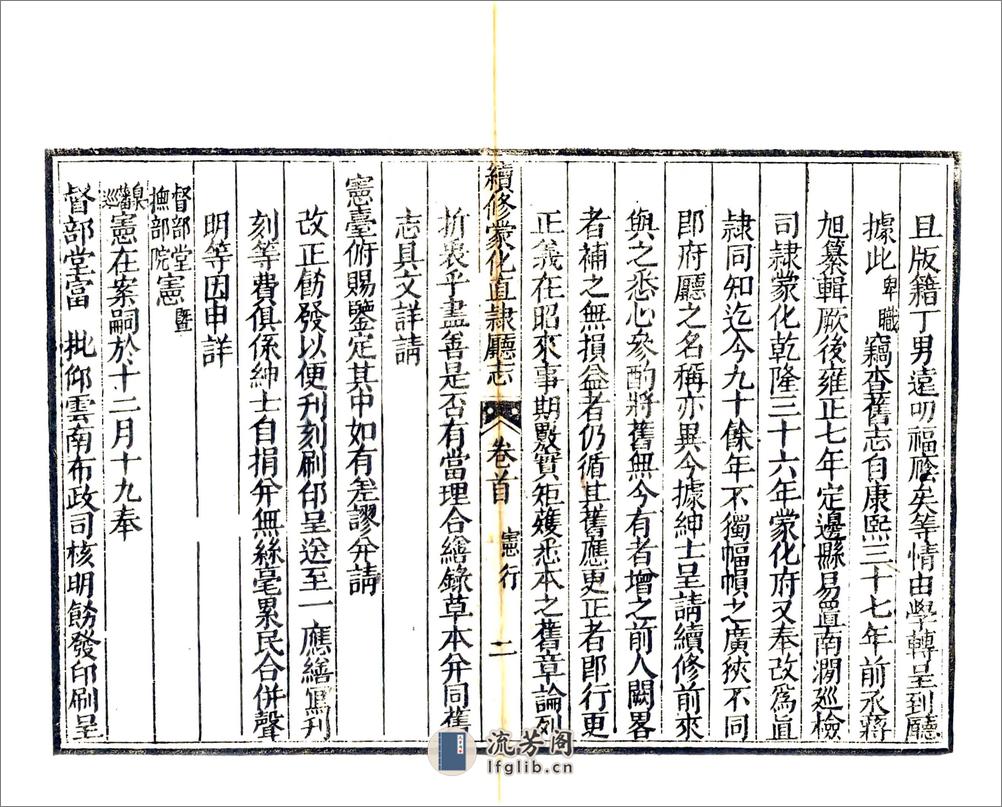 且版籍丁男遠叨福廕矣等情由學轉呈到廳
據此卑職竊查舊志自康熙三十七年前丞蔣
旭纂輯厥後雍正七年定邊縣易置南澗巡檢
司隷蒙化乾隆三十六年蒙化府又奉改爲直
隷同知迄今九十餘年不獨幅帽之廣狹不同
即府廳之名稱亦異今據紳士呈請續修前來
與之悉心參酌將舊無今有者增之前人闕畧
者補之無損益者仍循其舊應更正者即行更
正義在昭來事期覈實矩矱悉本之舊章論列
續修蒙化直隷廳志 卷首 憲行 二
折衷乎盡善是否有當理合繕錄草本并同舊
志具文詳請
憲臺俯賜鑒定其中如有差謬并請
改正飭發以便刊刻刷印呈送至一應繕寫刊
刻等費俱係紳士自捐并無絲毫累民合併聲
明等因申詳
督部堂憲暨
撫部院憲
臬藩巡憲在案嗣於十二月十九奉
督部堂當 批仰雲南布政司核明飭發印刷呈
流芳阁
lfglib.cn